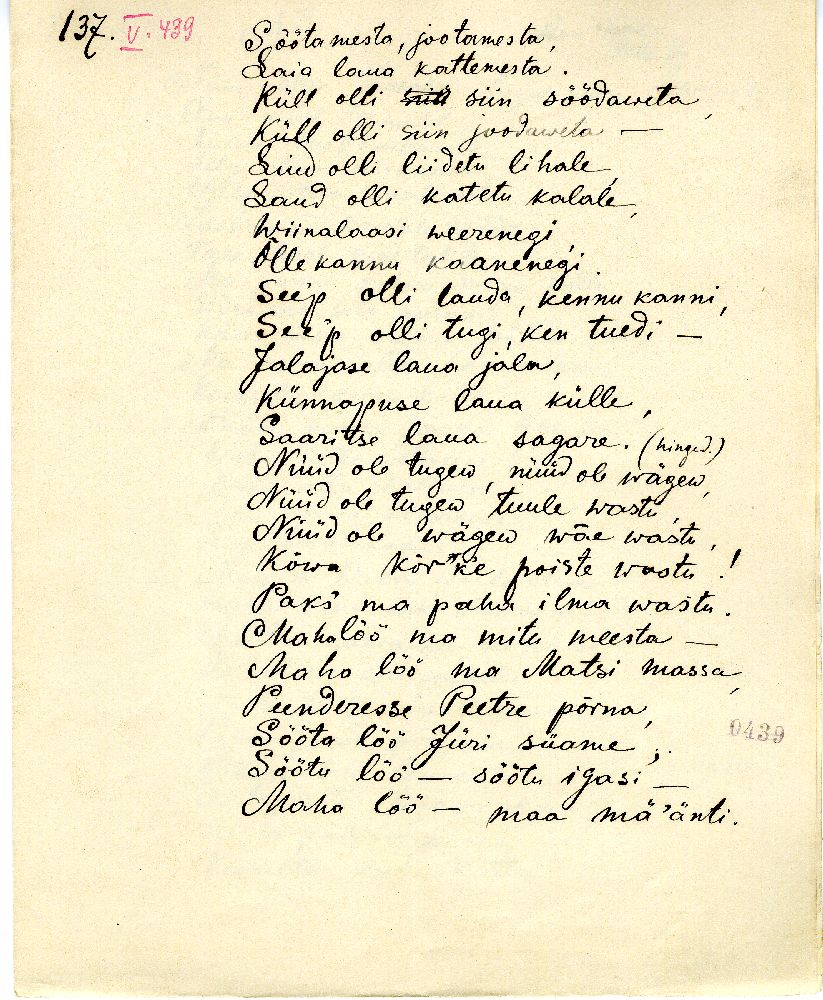 137. V. 439
Söötamesta, jootamesta,
Laia laua kattemesta.
Küll olli siin söödaweta,
Küll olli siin joodaweta —
Lind olli liidetu lihale,
Laud olli katetu kalale,
Wiinalaasi weerenegi,
Õllekannu kaanenegi.
See'p olli lauda, kennu kanni,
See'p olli tugi, ken tuedi —
Jalajase laua jala,
Künnapuse laua külle,
Saaritse laua sagare. (hinged.)
Nüüd ole tugew, nüüd ole wägew,
Nüüd ole tugew tuule wastu,
Nüüd ole wägew wäe wastu,
Kõwa kõr'k'e poiste wastu!
Paks ma paha ilma wastu.
Maha löö ma mitu meesta —
Maha löö ma Matsi massa,
Peenderesse Peetre põrna,
Sööta löö Jüri süame,
Söötu löö — söötu igasi —
Maha löö — maa mä'änti.
0439